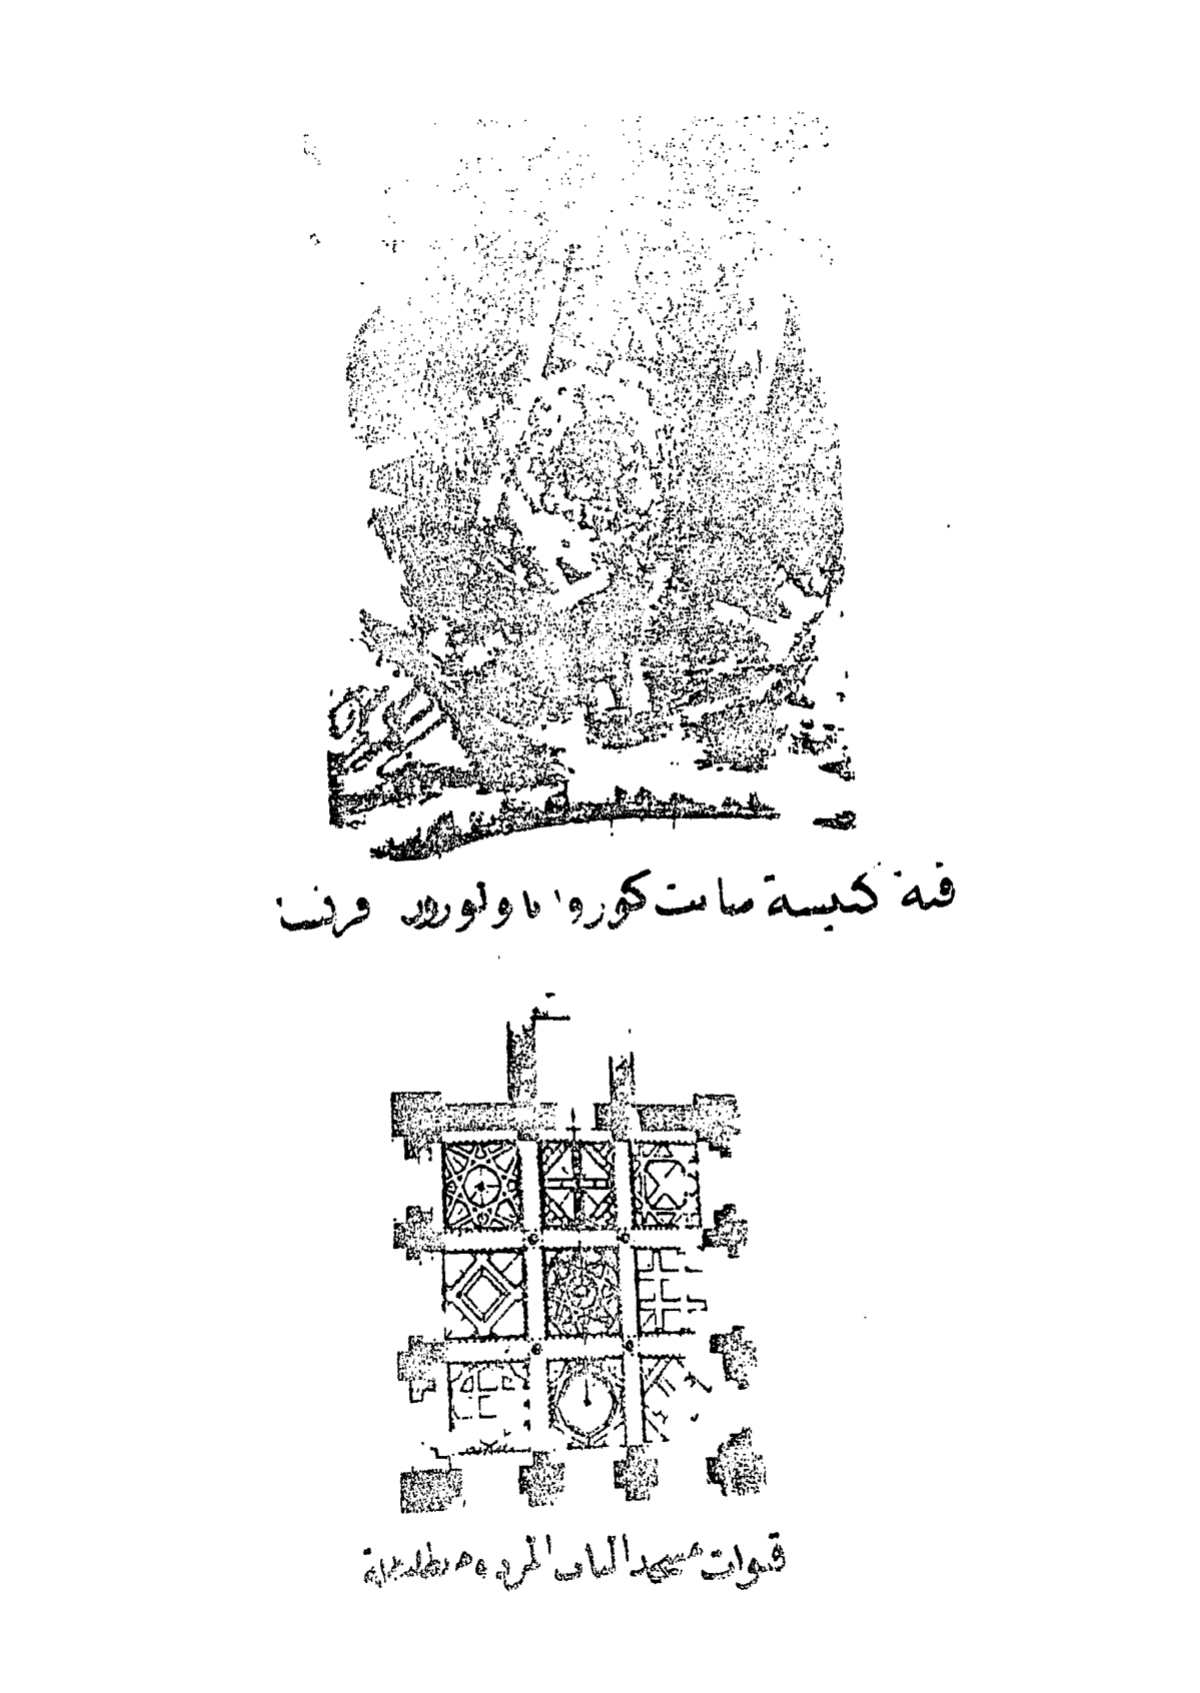 قبة كنيسة سانت كوروا باولورون فرنسا
قبوات مسجد الباب المردوم طليطلة